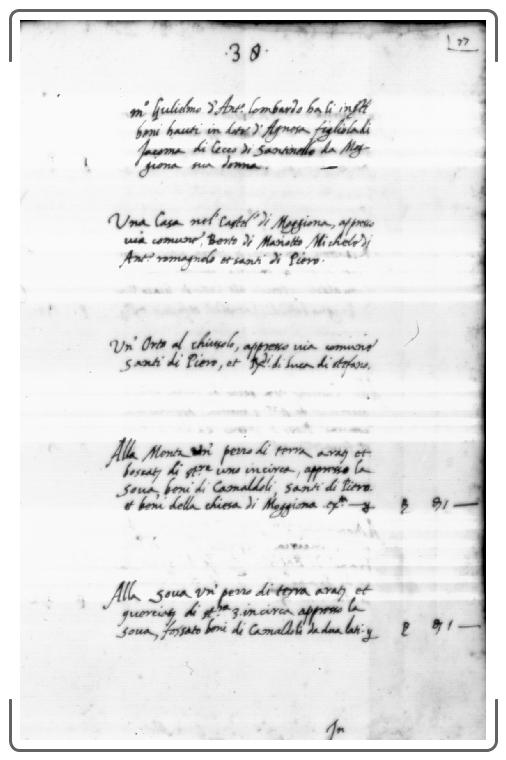 .38.
77
m.o Gulielmo d'Ant.o lombardo ha li infti
beni hauti in dote d'Agnesa figliola di
Jacoma di Cecco di Santinello da Mog-
giona sua donna. —
Una Casa nel Castel.o di Moggiona, appresso
via comune, Berto di Mariotto Michele di
Ant.o romagnolo et santi di Piero.
Un' Orto al chiusolo, appresso via comune
Santi di Piero, et di Luca di stefano.
Alla Monta un' pezzo di terra arat. et
boscat. di st.re uno incirca, appresso la
Soua beni di Camaldoli, Santi di Piero
et beni della chiesa di Moggiona
Alla Soua un' pezzo di terra arat. et
querciat. di st.ra 3. incirca appresso la
Soua, fossato beni di Camaldoli da dua lati
In